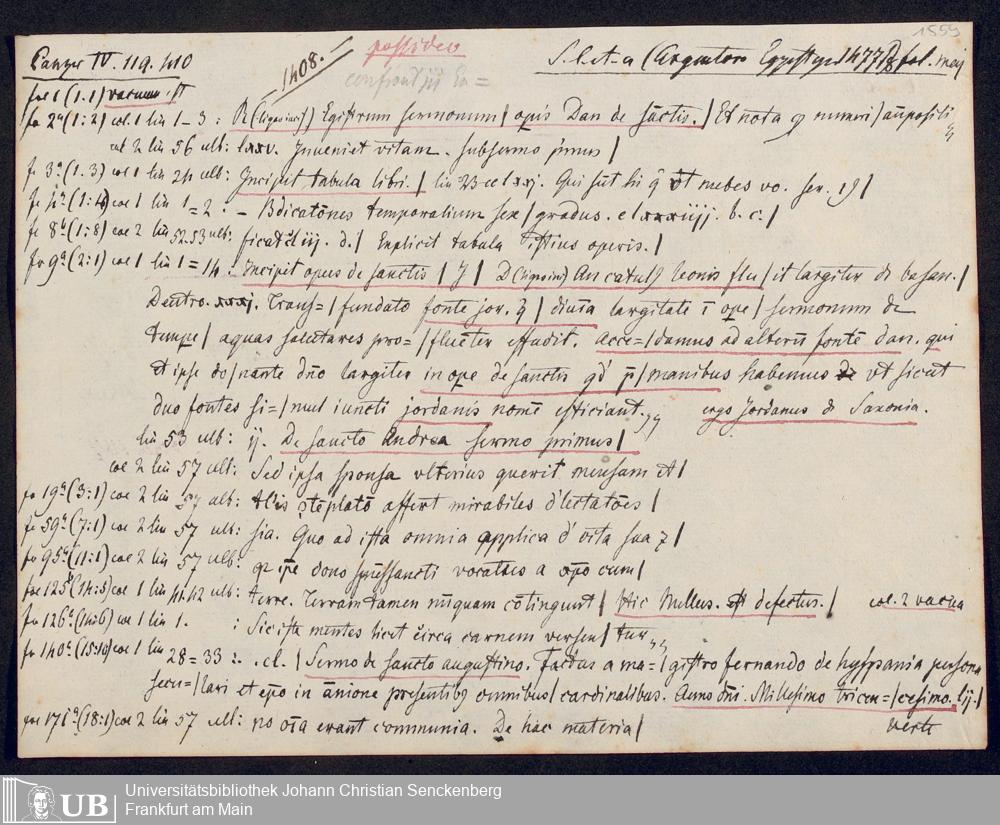 1559
Panzer IV. 119. 410 1408. possideo S. l. et a (Argentor. Eggesteyn 1477) fol. maj
confront
fol 1 (1.1) vacuum
fo 2a (1:2) col. 1 lin 1-3 : R (ligneis) Egistrum sermonum / opis Dan de sāctis. / Et nota q numeri / appositi
col 2 lin 56 ult: lxxv. Inueniet vitam. sub sermo primus /
fo 3a (1.3) col 1 lin 24 ult: Incipit tabula libri. / lin 23 Qui sūt hi q̄ vt nubes vo. ser. 19 /
(1:4) col 1 lin 1=2 : - Bdicatōnes temporalium sex / gradus. b. c. /
fo 8b (1:8) col 2 lin 52.53 ult: iij. d. / Explicit tabula operis. /
fo 9a (2:1) col 1 lin 1=14 : Incipit opus de sanctis / J / D (ligneis) An catulus leonis flu / it largiter de basan. /
Deutro. xxxj. Trans= / fundato fonte jor. q̄ / diuīa largitate ī ope / sermonum de
tempe / aquas salutares pro= / fluēter effudit. Acce= / damus ad alterū fontē dan. qui
et ipse do / nante dn̄o largiter in ope de sanctis qd̄ p̄ / manibus habemus vt sicut
duo fontes si= / mul iuncti jordanis nomē efficiant. ergo Jordanus de Saxonia.
lin 53 ult: ij. De sancto Andrea sermo primus /
col 2 lin 57 ult: Sed ipsa sponsa vlterius querit mensam et /
fo 19a (3:1) col 2 lin 57 ult: affert mirabiles dilectatōes /
fo 59a (7:1) col 2 lin 57 ult: sia. Quo ad ista omnia applica d' vita sua z /
fo 95a (11:1) col 2 lin 57 ult: qz ip̄e dono sp̄ussancti vocatus a xp̄o cum /
fol 125b (14:5) col 1 lin 41.42 ult: terre. Terram tamen nūquam cōtingunt / Hic Nullus. Est defectus. / col. 2 vacua
fo 126a (14:6) col 1 lin 1. : Sic iste mentes licet circa carnem versen / tur
fo 140a (15:10) col 1 lin 28=33 : . cl. / Sermo de sancto augustino. Factus a ma= / gistro fernando de hyspania persona
secu= / lari et ep̄o in presentibꝫ omnibus / cardinalibus. Anno dn̄i. Millesimo tricen= / tesimo. lij. /
fol 171a (18:1) col 2 lin 57 ult: no oīa erant communia. De hac materia / verte
UB Universitätsbibliothek Johann Christian Senckenberg
Frankfurt am Main